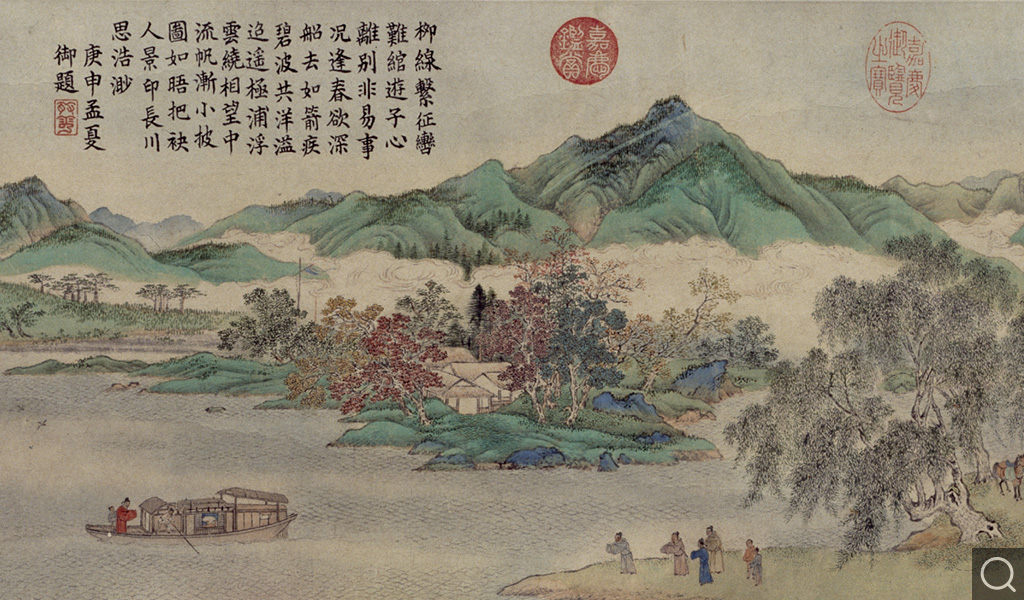 柳線繫征轡
難綰遊子心
離別非易事
况逢春欲深
船去如箭疾
碧波共洋溢
迢遙極浦浮
雲繞相望中
流帆漸小披
圖如晤把袂
人景印長川
思浩渺
庚申孟夏
御題
嘉慶
鑑賞
嘉慶
御覽
之寶